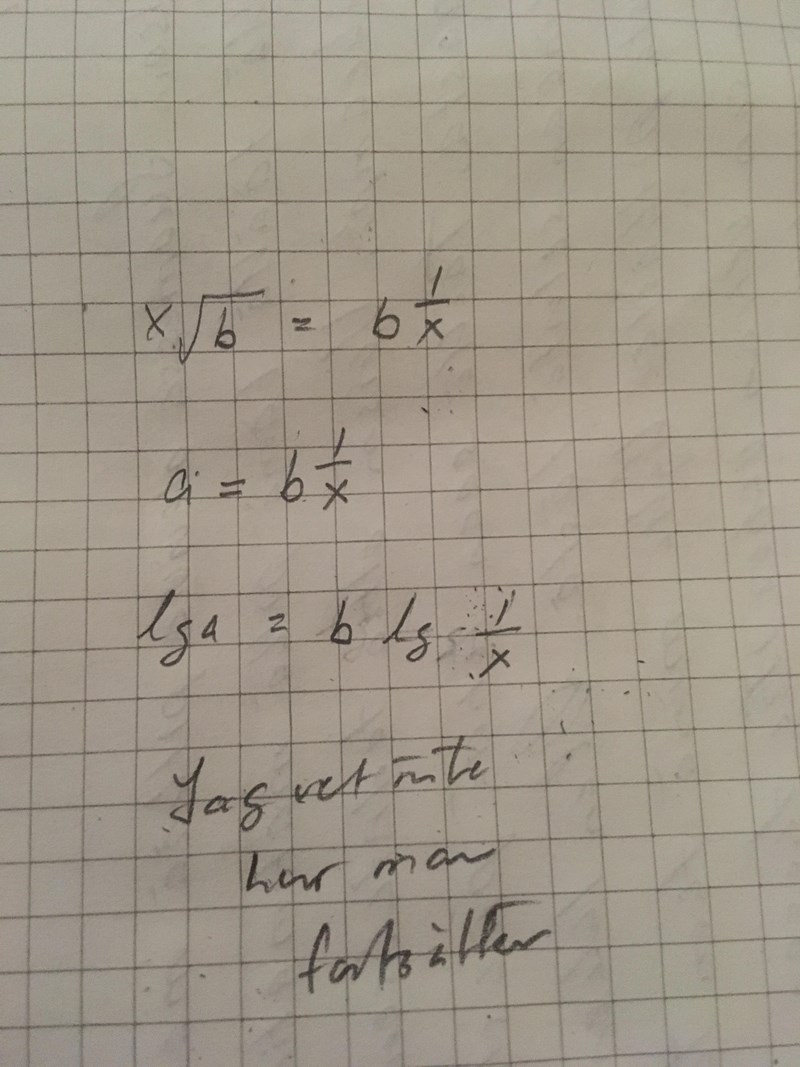 x√b = b 1/x
a = b 1/x
lg a = b lg 1/x
Jag vet inte
hur man
fortsätter